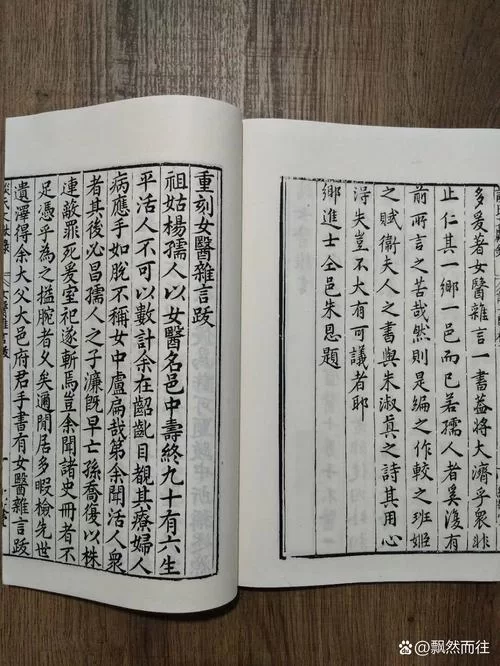 多爰著女醫雜言一書
止仁其一鄉一邑而已若孺人者奚復有
前所言之苦哉然則是編之作較之班姬
之賦衛夫人之書與朱淑真之詩其用心
得失豈不大有可議者耶
鄉進士仝邑朱恩題
重刻女醫雜言跋
祖姑楊孺人以女醫名邑中壽終九十有六生
平活人不可以數計余在齠齔目覩其療婦人
病應手如脫不稱女中盧扁哉第余聞活人衆
者其後必昌孺人之子濂既早亡孫喬復以株
連敵罪死爰室祀遂斬焉豈余聞諸史冊者不
足憑乎為之搤腕者久矣適閒居多暇檢先世
遺澤得余大父大邑府君手書有女醫雜言跋
女醫雜言跋
@飘然而往